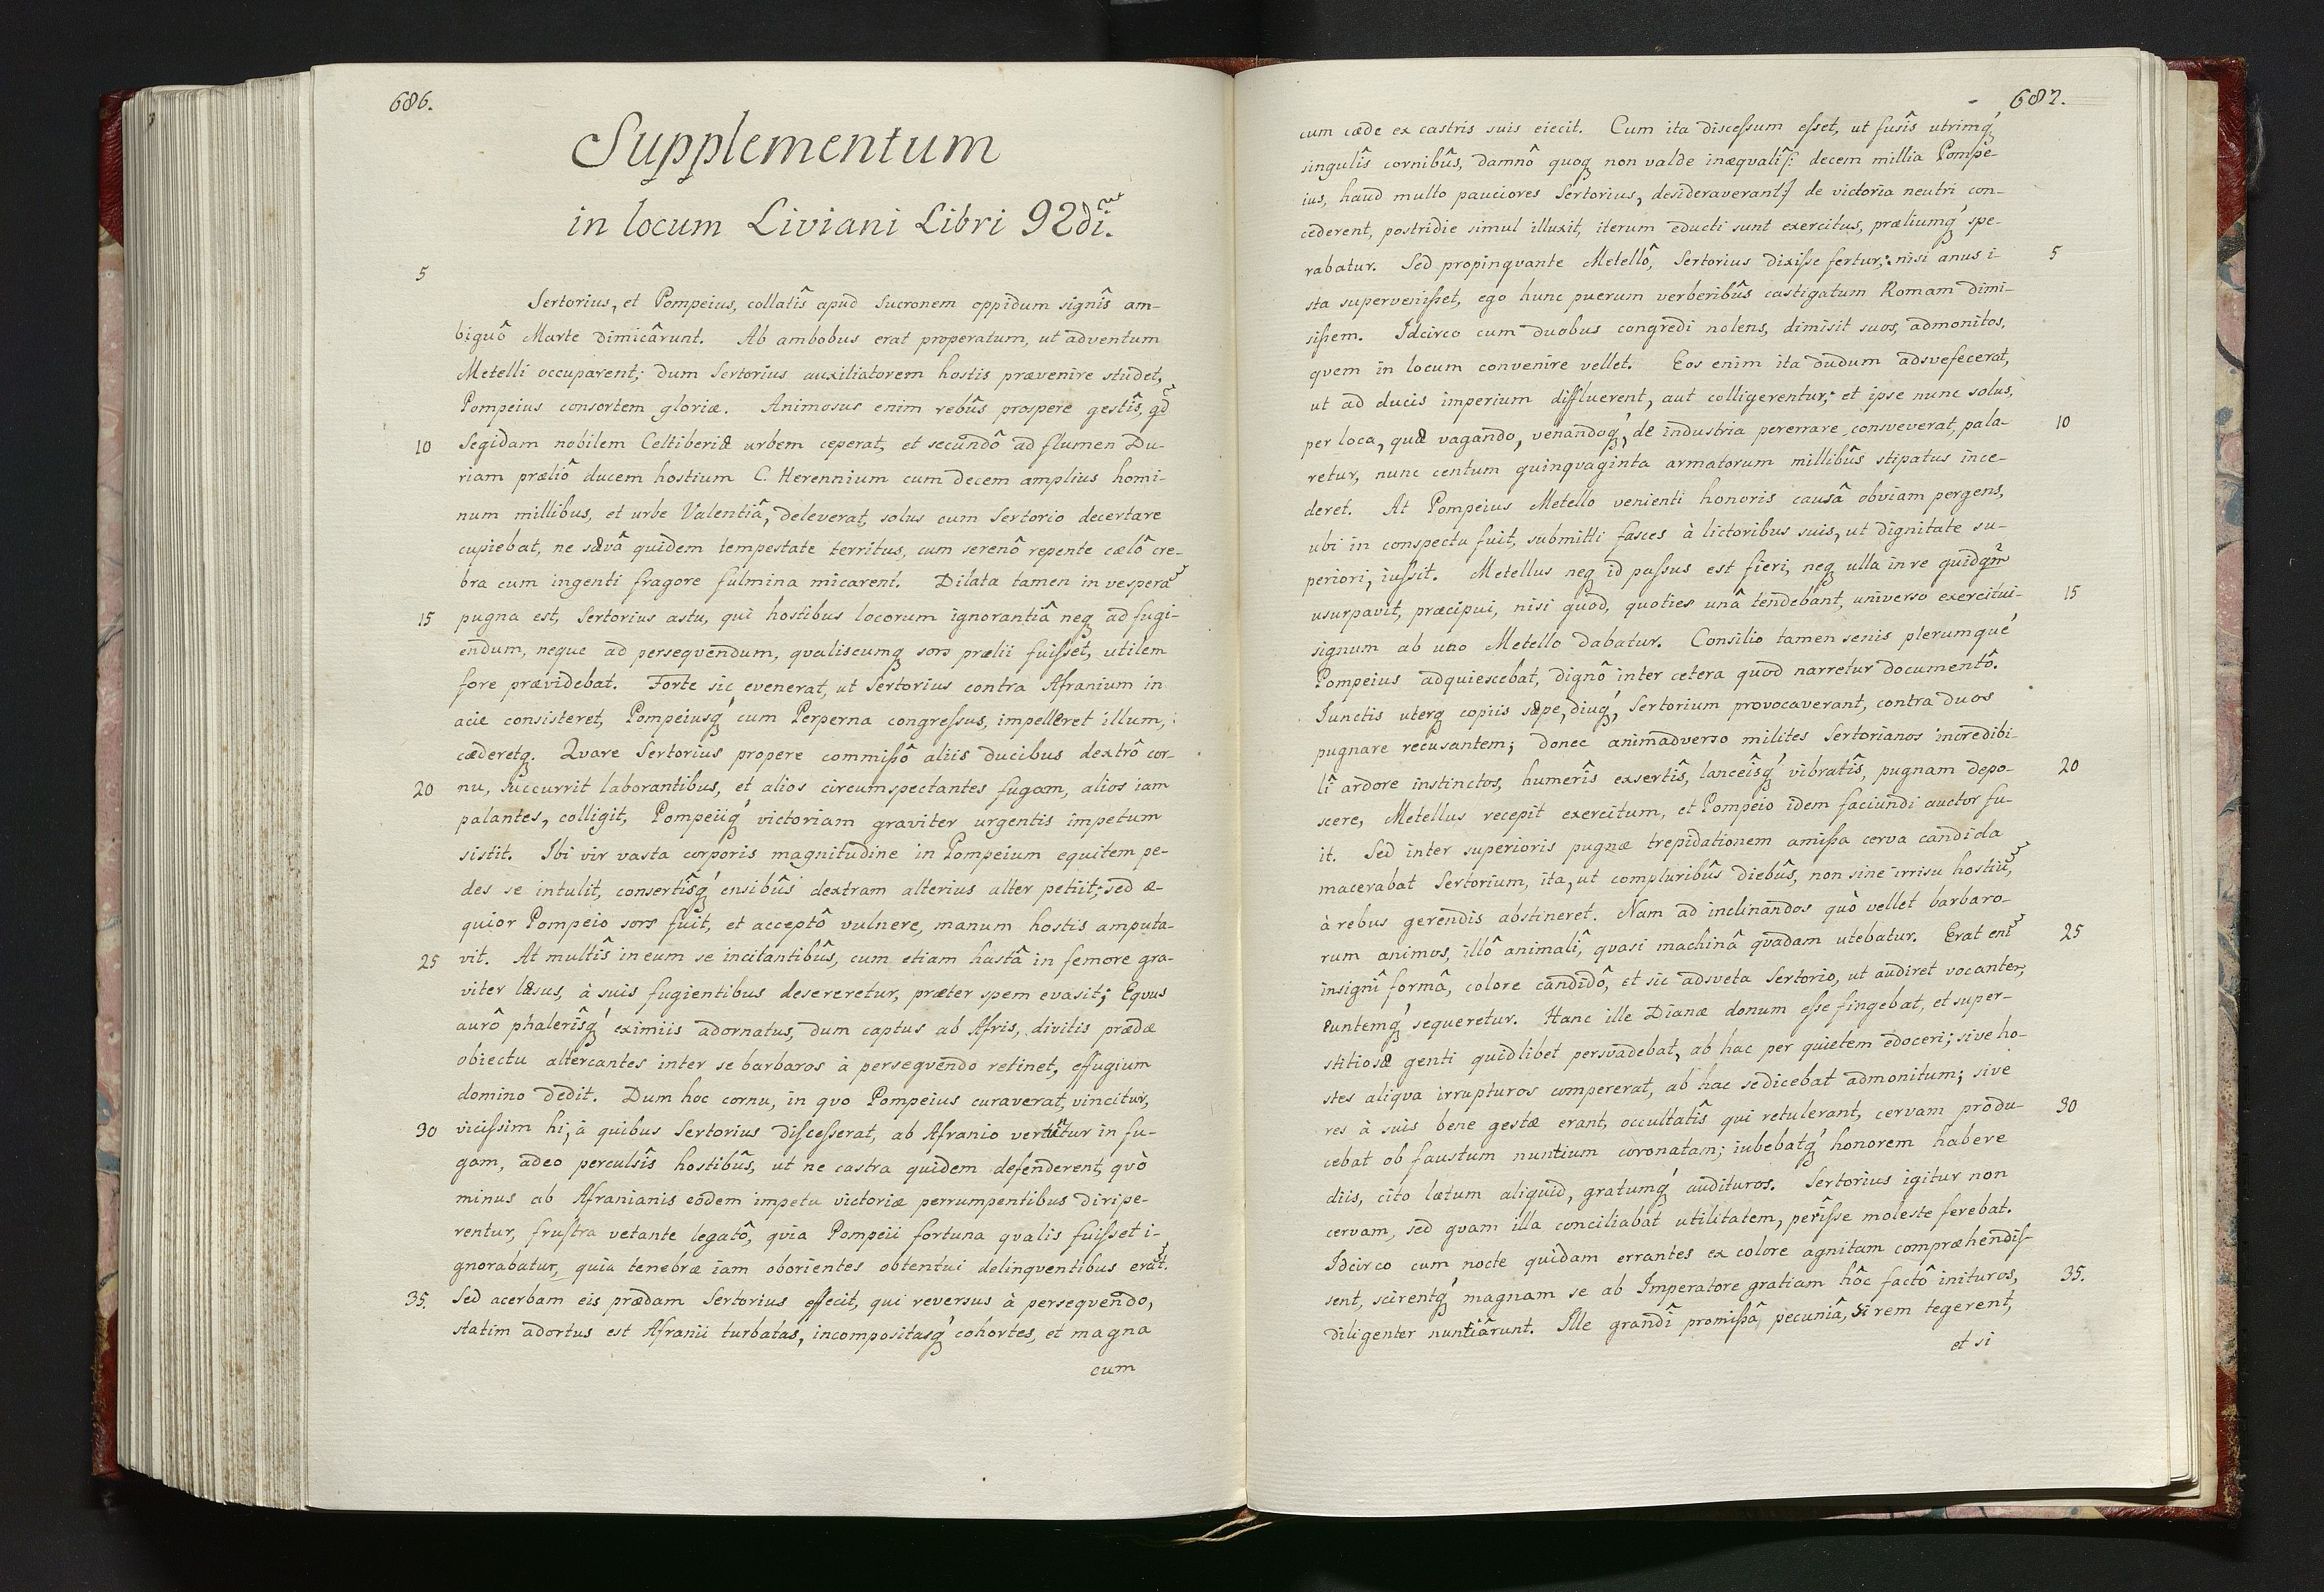 686.
Supplementum
in locum Liviani Libri 92di.
5
Sertorius, et Pompeius, collatîs apud Sucronem oppidum signîs am-
biguô Marte dimicârunt. Ab ambobus erat properatum, ut adventum
Metelli occuparent; dum Sertorius auxiliatorem hostis prævenire studet,
Pompeius consortem gloriæ. Animosus enim rebûs prospere gestîs, qd
10 Segidam nobilem Celtiberiæ urbem ceperat, et secundô ad flumen Du-
riam præliô ducem hostium C. Herennium cum decem amplius homi-
num millibus, et urbe Valentiâ, deleverat, solus cum Sertorio decertare
cupiebat, ne sævâ quidem tempestate territus, cum serenô repente cælô cre-
bra cum ingenti fragore fulmina micarent. Dilata tamen in vesperã
15 pugna est, Sertorius astu, qui hostibus locorum ignorantiâ neq ad fugi-
endum, neque ad persequendum, qualiscumq sors prælii fuisset, utilem
fore prævidebat. Forte sic evenerat, ut Sertorius contra Afranium in
acie consisteret, Pompeiusq́ cum Perperna congressus, impelleret illum,
cæderetq. Quare Sertorius propere commißô aliis ducibus dextrô cor-
20 nu, succurrit laborantibus, et alios circumspectantes fugam, alios iam
palantes, colligit, Pompeiiq́ victoriam graviter urgentis impetum
sistit. Ibi vir vasta corporis magnitudine in Pompeium equitem pe-
des se intulit, consertîsq́ ensibûs dextram alterius alter petiit; sed æ-
quior Pompeio sors fuit, et acceptô vulnere, manum hostis amputa-
25 vit. At multîs in eum se incitantibûs, cum etiam hastâ in femore gra-
viter læsus, à suis fugientibus desereretur, præter spem evasit; Equus
aurô phalerîsq́ eximiis adornatus, dum captus ab Afris, divitis prædæ
obiectu altercantes inter se barbaros à persequendo retinet, effugium
domino dedit. Dum hoc cornu, in quo Pompeius curaverat, vincitur,
30 vicissim hi, à quibus Sertorius discesserat, ab Afranio vertũtur in fu-
gam, adeo perculsîs hostibûs, ut ne castra quidem defenderent, quò
minus ab Afranianis eodem impetu victoriæ perrumpentibus diripe-
rentur, frustra vetante legatô, quia Pompeii fortuna qualis fuisset i-
gnorabatur, quia tenebræ iam oborientes obtentui delinquentibus erãt.
35. Sed acerbam eis prædam Sertorius effecit, qui reversus à persequendo,
statim adortus est Afranii turbatas, incompositasq́ cohortes, et magna
cum
687.
cum cæde ex castris suis eiecit. Cum ita discessum esset, ut fusîs utrimq́
singulîs cornibûs, damnô quoq non valde inæqualî /: decem millia Pompe-
ius, haud multo pauciores Sertorius, desideraverant :/ de victoria neutri con-
cederent, postridie simul illuxit, iterum educti sunt exercitus, præliumq́ spe-
rabatur. Sed propinquante Metellô, Sertorius dixisse fertur: nisi anus i- 5
sta supervenisset, ego hunc puerum verberibûs castigatum Romam dimi-
sißem. Idcirco cum duobus congredi nolens, dimisit suos, admonitos,
quem in locum convenire vellet. Eos enim ita dudum adsvefecerat,
ut ad ducis imperium diffluerent, aut colligerentur; et ipse nunc solus,
per loca, quæ vagando, venandoq́, de industria pererrare consveverat, pala- 10
retur, nunc centum quinquaginta armatorum millibûs stipatus ince-
deret. At Pompeius Metello venienti honoris causâ obviam pergens,
ubi in conspectu fuit, submitti fasces à lictoribus suis, ut dignitate su-
periori, iussit. Metellus neq id passus est fieri, neq ulla in re quidqm
usurpavit, præcipui, nisi quod, quoties unâ tendebant, universo exercitui 15
signum ab uno Metello dabatur. Consilio tamen senis plerumque
Pompeius adquiescebat, dignô inter cetera quod narretur documentô.
Iunctis uterq copiis sæpe, diuq́, Sertorium provocaverant, contra duos
pugnare recusantem; donec animadverso milites Sertorianos incredibi-
lî ardore instinctos, humerîs exsertîs, lanceîsq́ vibratîs, pugnam depo- 20
scere, Metellus recepit exercitum, et Pompeio idem faciundi auctor fu-
it. Sed inter superioris pugnæ trepidationem amißa cerva candida
macerabat Sertorium, ita, ut compluribûs diebûs, non sine irrisu hostiũ,
à rebus gerendis abstineret. Nam ad inclinandos quò vellet barbaro-
rum animos, illô animalî, quasi machinâ quadam utebatur. Erat eni 25
insignî formâ, colore candidô, et sic adsveta Sertorio, ut audiret vocantem,
euntemq́ sequeretur. Hanc ille Dianæ donum esse fingebat, et super-
stitiosæ genti quidlibet persvadebat, ab hac per quietem edoceri; sive ho-
stes aliqua irrupturos compererat, ab hac se dicebat admonitum; sive
res à suis bene gestæ erant, occultatîs qui retulerant, cervam produ- 30
cebat ob faustum nuntium coronatam; iubebatq́ honorem habere
diis, cito lætum aliquid, gratumq́ audituros. Sertorius igitur non
cervam, sed quam illa conciliabat utilitatem, perîsse moleste ferebat.
Idcirco cum nocte quidam errantes ex colore agnitam compræhendis-
sent, scirentq́ magnam se ab Imperatore gratiam hôc factô inituros, 35.
diligenter nuntiârunt. Ille grandî promißâ pecuniâ, si rem tegerent,
et si